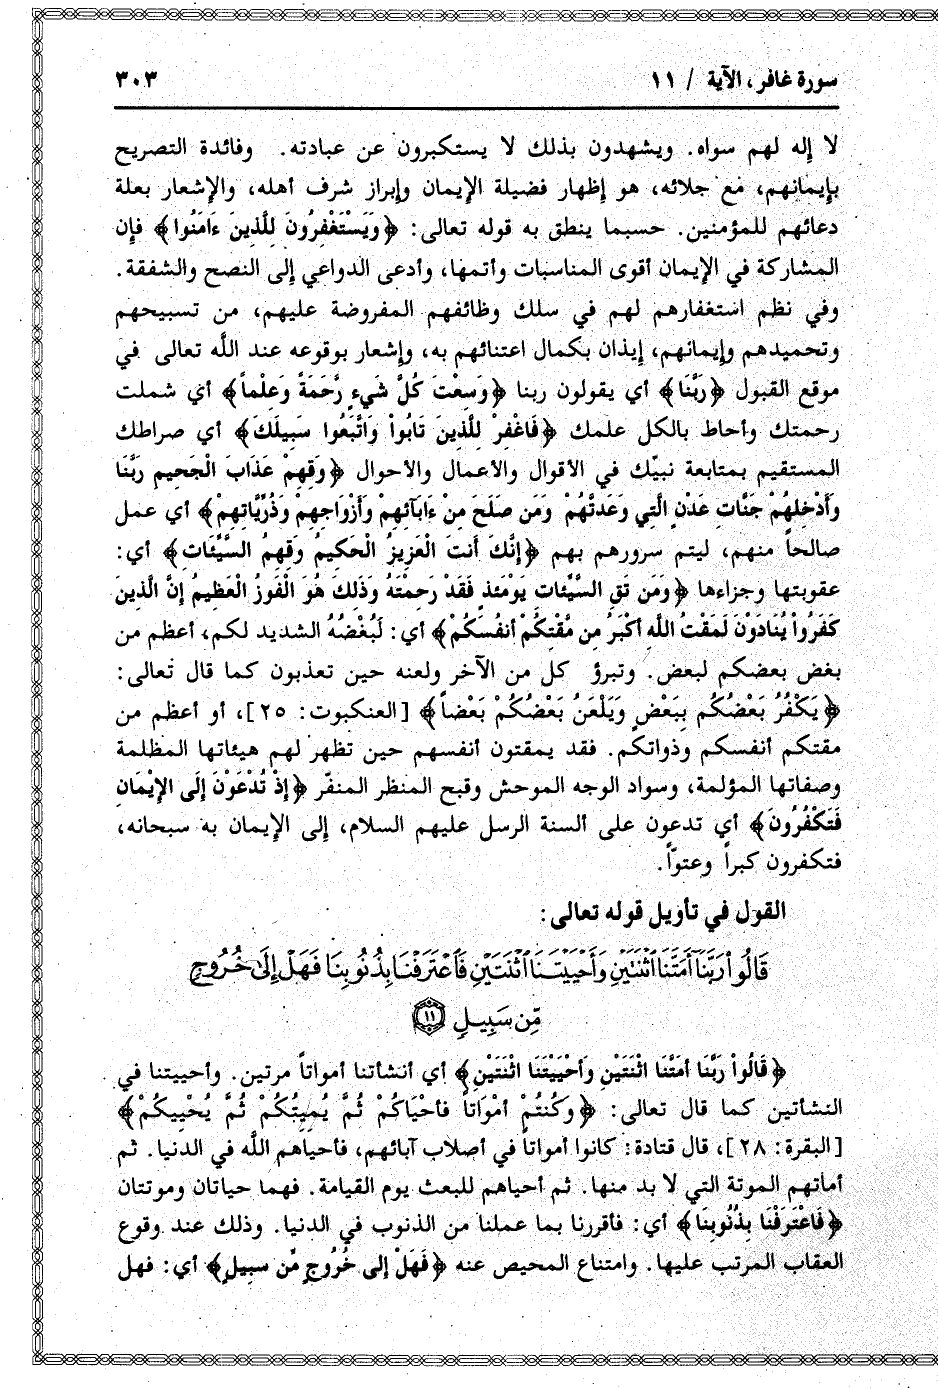 سورة غافر، الآية / ١١
٣٠٣
لا إله لهم سواه. ويشهدون بذلك لا يستكبرون عن عبادته. وفائدة التصريح
بإيمانهم، مع جلائه، هو إظهار فضيلة الإيمان وإبراز شرف أهله، والإشعار بعلة
دعائهم للمؤمنين. حسبما ينطق به قوله تعالى: ﴿وَيَسْتَغْفِرُونَ لِلَّذِينَ ءَامَنُوا﴾ فإن
المشاركة في الإيمان أقوى المناسبات وأتمها، وأدعى الدواعي إلى النصح والشفقة.
وفي نظم استغفارهم لهم في سلك وظائفهم المفروضة عليهم، من تسبيحهم
وتحميدهم وإيمانهم، إيذان بكمال اعتنائهم به، وإشعار بوقوعه عند الله تعالى في
موقع القبول ﴿رَبَّنَا﴾ أي يقولون ربنا ﴿وَسِعْتَ كُلَّ شَيءٍ رَّحْمَةً وَعِلْماً﴾ أي شملت
رحمتك وأحاط بالكل علمك ﴿فَاغْفِرْ لِلَّذِينَ تَابُواْ وَاتَّبَعُوا سَبِيلَكَ﴾ أي صراطك
المستقيم بمتابعة نبيّك في الأقوال والأعمال والأحوال ﴿وَقِهِمْ عَذَابَ الْجَحِيمِ رَبَّنَا
وَأَدْخِلهُمْ جَنَّاتِ عَدْنٍ الَّتِي وَعَدتَّهُمْ وَمَن صَلَحَ مِنْ ءَابَآئِهِمْ وَأَزْوَاجِهِمْ وَذُرِّيَّاتِهِمْ﴾ أي عمل
صالحاً منهم، ليتم سرورهم بهم ﴿إِنَّكَ أَنتَ الْعَزِيزُ الْحَكِيمُ وَقِهِمُ السَّيِّئَاتِ﴾ أي:
عقوبتها وجزاءها ﴿وَمَن تَقِ السَّيِّئَاتِ يَوْمَئِذٍ فَقَدْ رَحِمْتَهُ وَذَلِكَ هُوَ الْفَوزُ الْعَظِيمُ إِنَّ الَّذِينَ
كَفَرُواْ يُنَادَوْنَ لَمَقْتُ اللَّهِ أَكْبَرُ مِن مَّقْتِكُمْ أَنفُسَكُمْ﴾ أي: لَبُغْضُهُ الشديد لكم، أعظم من
بغض بعضكم لبعض. وتبرؤ كل من الآخر ولعنه حين تعذبون كما قال تعالى:
﴿يَكْفُرُ بَعْضُكُم بِبَعْضٍ وَيَلْعَنُ بَعْضُكُمْ بَعْضاً﴾ [العنكبوت: ٢٥]، أو أعظم من
مقتكم أنفسكم وذواتكم. فقد يمقتون أنفسهم حين تظهر لهم هيئاتها المظلمة
وصفاتها المؤلمة، وسواد الوجه الموحش وقبح المنظر المنفّر ﴿إِذْ تُدْعَوْنَ إِلَى الإِيْمَانِ
فَتَكْفُرُونَ﴾ أي تدعون على ألسنة الرسل عليهم السلام، إلى الإيمان به سبحانه،
فتكفرون كبراً وعتوّاً.
القول في تأويل قوله تعالى:
قَالُواْ رَبَّنَآ أَمَتَّنَا ٱثْنَتَيْنِ وَأَحْيَيْتَنَا ٱثْنَتَيْنِ فَٱعْتَرَفْنَا بِذُنُوبِنَا فَهَلْ إِلَىٰ خُرُوجٍ
مِّن سَبِيلٍ ﴿١١﴾
﴿قَالُواْ رَبَّنَا أَمَتَّنَا اثْنَتَيْنِ وَأَحْيَيْتَنَا اثْنَتَيْنِ﴾ أي أنشأتنا أمواتاً مرتين. وأحييتنا في
النشأتين كما قال تعالى: ﴿وَكُنتُمْ أَمْوَاتاً فَأَحْيَاكُمْ ثُمَّ يُمِيتُكُمْ ثُمَّ يُحْيِيكُمْ﴾
[البقرة: ٢٨]، قال قتادة: كانوا أمواتاً في أصلاب آبائهم، فأحياهم الله في الدنيا. ثم
أماتهم الموتة التي لا بد منها. ثم أحياهم للبعث يوم القيامة. فهما حياتان وموتتان
﴿فَاعْتَرَفْنَا بِذُنُوبِنَا﴾ أي: فأقررنا بما عملنا من الذنوب في الدنيا. وذلك عند وقوع
العقاب المرتب عليها. وامتناع المحيص عنه ﴿فَهَلْ إِلى خُرُوجٍ مِّن سبيلٍ﴾ أي: فهل